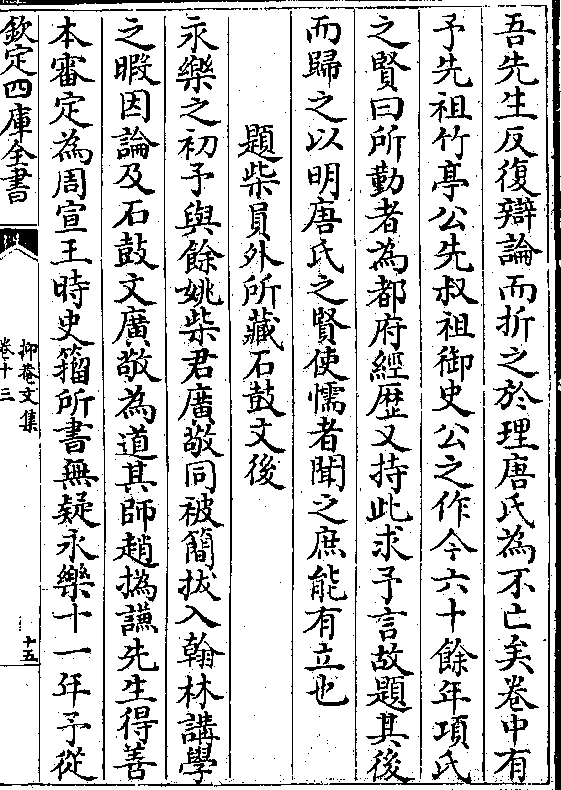 吾先生反復辯論而折之於理唐氏為不亡矣卷中有
予先祖竹亭公先叔祖御史公之作今六十餘年項氏
之賢曰所勤者為都府經歴又持此求予言故題其後
而歸之以明唐氏之賢使懦者聞之庶能有立也
題柴員外所藏石鼓文後
永樂之初予與餘姚柴君廣敬同被簡拔入翰林講學
之暇因論及石鼓文廣敬為道其師趙撝謙先生得善
本審定為周宣王時史籀所書無疑永樂十一年予從
欽定四庫全書
抑菴文集
卷十三
十五